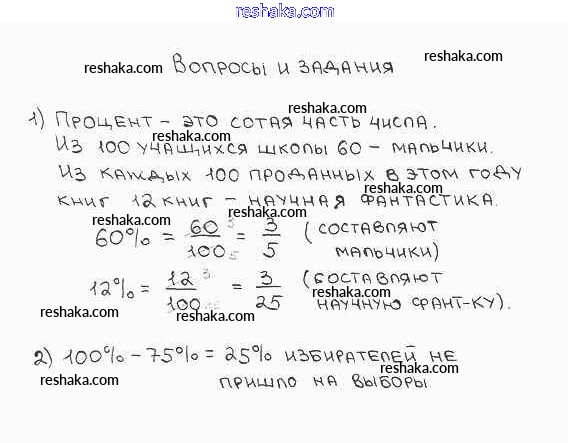 reshaka.com
Вопросы и задания
reshaka.com reshaka.com
reshaka.com
1) Процент – это сотая часть числа.
reshaka.com
Из 100 учащихся школы 60 – мальчики.
Из каждых 100 проданных в этом году
книг 12 книг – научная фантастика.
reshaka.com reshaka.com
60% = 60/100 = 3/5 (составляют
мальчики)
12% = 12/100 = 3/25 (составляют
научную фант-ку).
reshaka.com
reshaka.com reshaka.com
2) 100% – 75% = 25% избирателей не
пришло на выборы.
reshaka.com reshaka.com